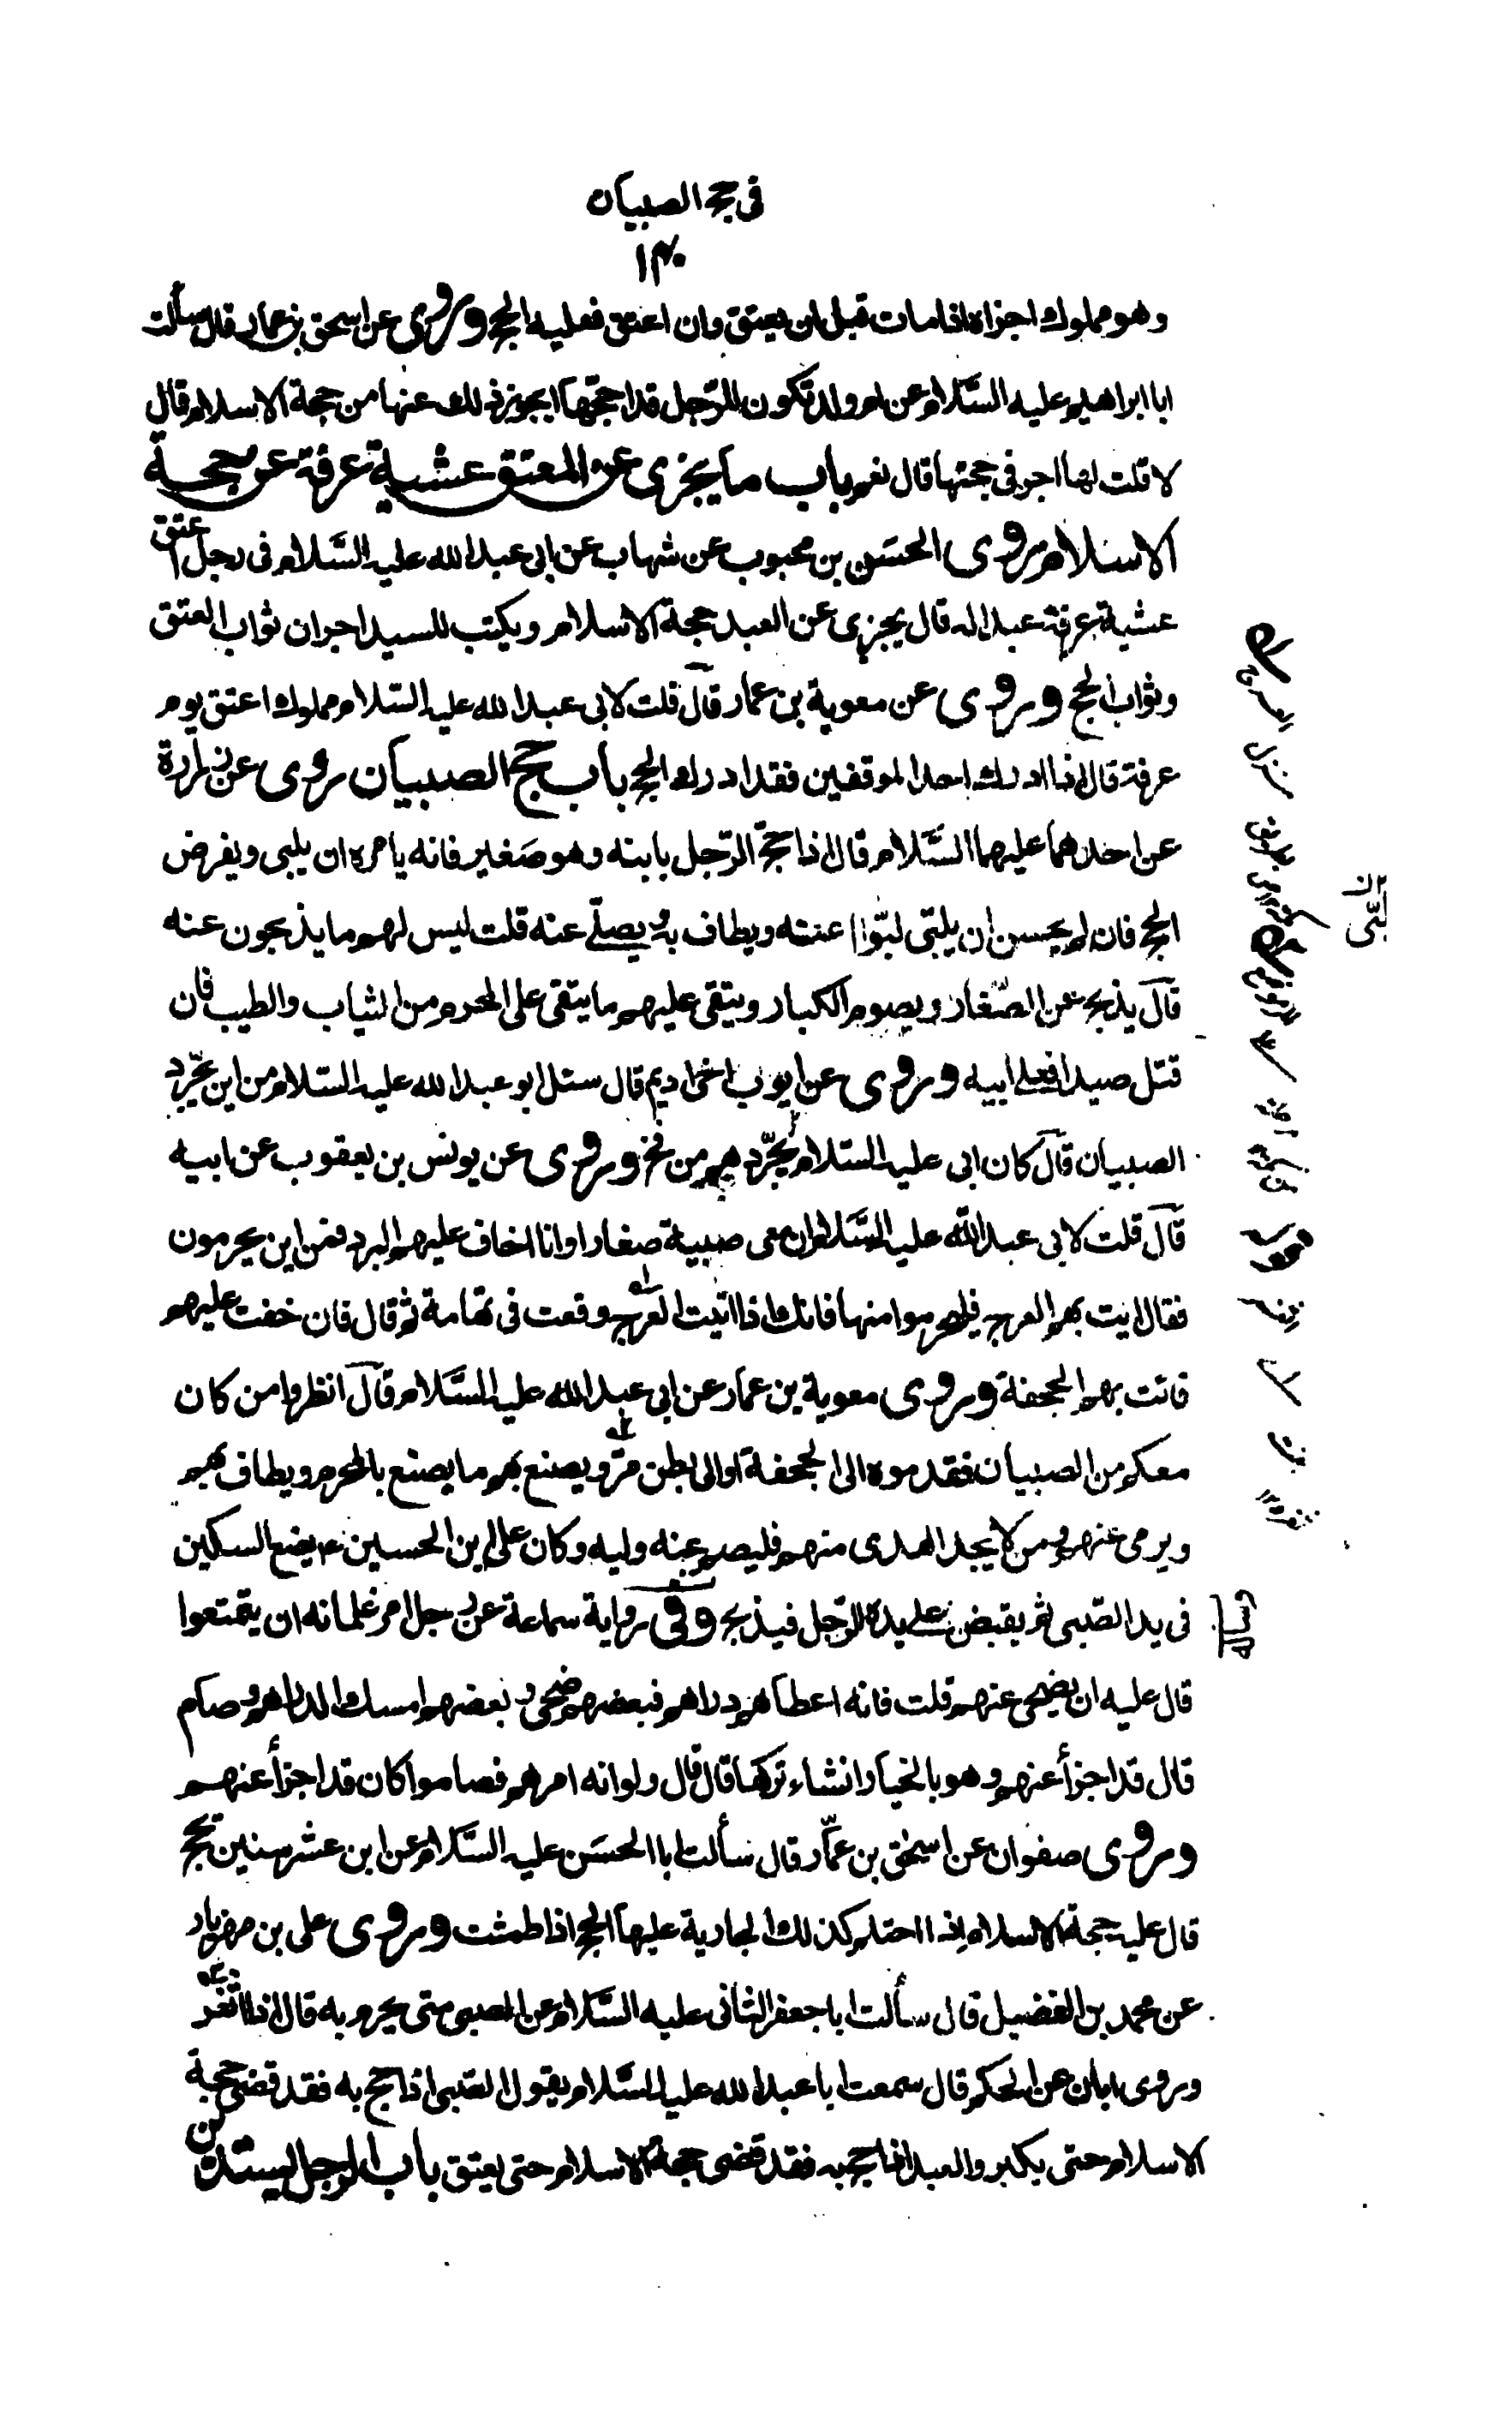 فى حج الصبيان
١٣٠
وهو مملوك اجزاه اذا مات قبل ان يعتق وان اعتق فعليه الحج وروى عن اسحق بن عمار قال سألت
ابا ابراهيم عليه السَّلام عن ام ولد تكون للرّجل قد احجّها ايجوز ذلك عنها من حجة الاسلام قال
لا قلت لها اجر فى حجتها قال نعم باب ما يجزى عن المعتق عشية عرفة عن حجة
الاسلام روى الحسَن بن محبوب عن شهاب عن ابى عبد الله عليه السَّلام فى رجل اعتق
عشية عرفة عبدا له قال يجزى عن العبد حجة الاسلام ويكتب للسيد اجران ثواب العتق
وثواب الحج وروى عن معوية بن عمار قال قلت لابى عبد الله عليه السّلام مملوك اعتق يوم
عرفة قال اذا ادرك احد الموقفين فقد ادرك الحج باب حج الصبيان روى عن زرارة
عن احدهما عليهما السَّلام قال اذا حجّ الرّجل بابنه وهو صَغير فانه يامره ان يلبى ويفرض
الحج فان لم يحسن ان يلبّى لبّوا عنه ويطاف به ويصلّى عنه قلت ليس لهم ما يذبحون عنه
قال يذبح عن الصّغار ويصوم الكبار ويتقى عليهم ما يتقى على المحرم من الثياب والطيب فان
قتل صيدا فعلى ابيه وروى عن ايوب اخى اديم قال سئل ابو عبد الله عليه السّلام من اين يجرّد
الصبيان قال كان ابى عليه السّلام يجرّدهم من فخ وروى عن يونس بن يعقوب عن ابيه
قال قلت لابى عبد الله عليه السَّلام ان معى صبية صغارا وانا اخاف عليهم البرد فمن اين يحرمون
فقال ايت بهم العرج فليحرموا منها فانك اذا اتيت العرج وقعت فى تهامة ثم قال فان خفت عليهم
فائت بهم الجحفة وروى معوية بن عمار عن ابى عبد الله عليه السَّلام قال انظروا من كان
معكم من الصبيان فقدموه الى الجحفة او الى بطن مرّ ويصنع بهم ما يصنع بالمحرم ويطاف بهم
ويرمى عنهم ومن لا يجد الهدى منهم فليصم عنه وليه وكان على بن الحسين ع يضع السكين
فى يد الصّبى ثم يقبض على يده الرّجل فيذبح وفى رواية سماعة عن رجل امر غلمانه ان يتمتعوا
قال عليه ان يضحى عنهم قلت فانه اعطاهم دراهم فبعضهم ضحى وبعضهم امسك الدراهم وصام
قال قد اجزأ عنهم وهو بالخيار ان شاء تركها قال قال ولو انه امرهم فصاموا كان قد اجزأ عنهم
وروى صفوان عن اسحٰق بن عمّار قال سألت ابا الحسَن عليه السَّلام عن ابن عشر سنين يحج
قال عليه حجة الاسلام اذا احتلم كذلك الجارية عليها الحج اذا طمثت وروى على بن مهزيار
عن محمد بن الفضيل قال سألت ابا جعفر الثانى عليه السَّلام عن الصبى متى يحرم به قال اذا اثغر
وروى ابان عن الحكم قال سمعت ابا عبد الله عليه السَّلام يقول الصّبى اذا حج به فقد قضى حجة
الاسلام حتى يكبر والعبد اذا حج به فقد قضى حجة الاسلام حتى يعتق باب الرجل يستدين